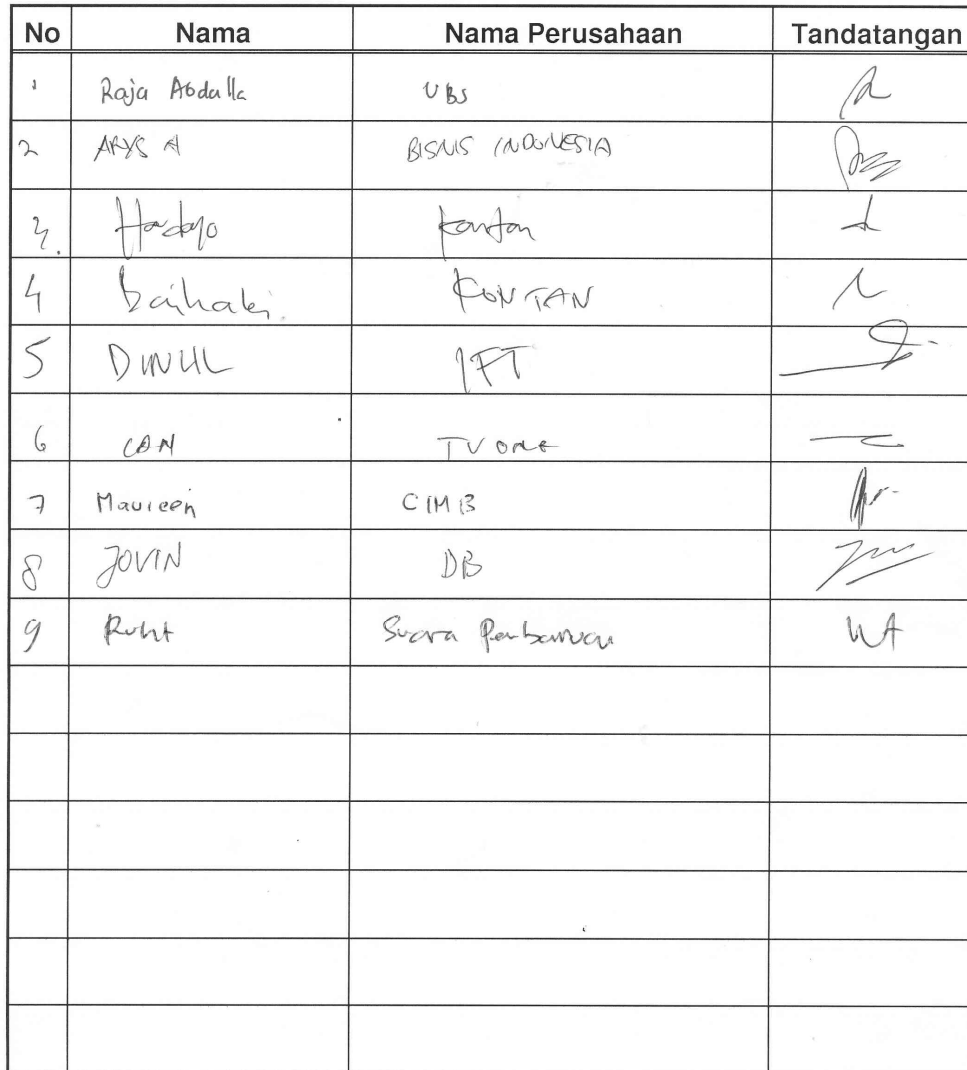 No Nama Nama Perusahaan Tandatangan
1 Raja Abdulla UBS
2 ARYS A BISNIS INDONESIA
3. Hardoyo Kontan
4 Baihaki KONTAN
5 DINUL IFT
6 TV ONE
7 Maureen CIMB
8 JOVIN DB
9 Suara Pembaruan